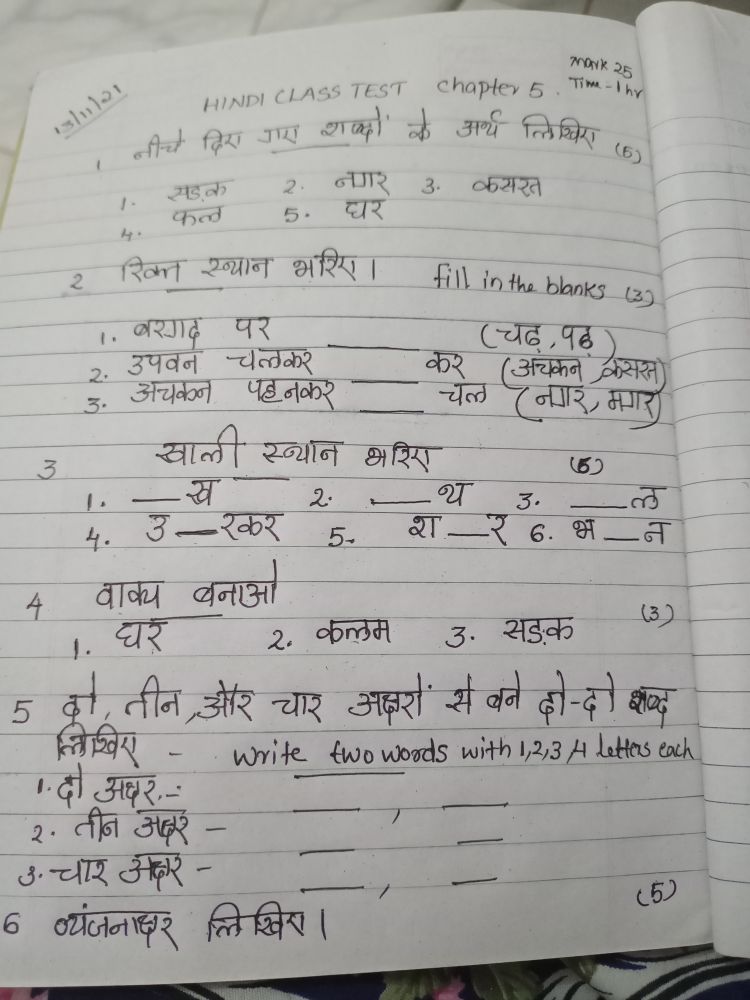 13/11/21
HINDI CLASS TEST chapter 5. Mark 25
Time - 1 hr
1 नीचे दिए गए शब्दों के अर्थ लिखिए (5)
1. सड़क 2. नगर 3. कसरत
4. फल 5. घर
2 रिक्त स्थान भरिए। fill in the blanks (3)
1. बरगद पर ____ (चढ़, पढ़)
2. उपवन चलकर ____ कर (अचकन, कसरत)
3. अचकन पहनकर ____ चल (नगर, मगर)
3 खाली स्थान भरिए (6)
1. __ ख 2. __ थ 3. __ ल
4. उ __ रकर 5. श __ र 6. भ __ न
4 वाक्य बनाओ (3)
1. घर 2. कलम 3. सड़क
5 दो, तीन, और चार अक्षरों से बने दो-दो शब्द
लिखिए - write two words with 1,2,3,4 letters each
1. दो अक्षर.-: ____, ____
2. तीन अक्षर - ____ ____
3. चार अक्षर - ____, ____
(5)
6 व्यंजनाक्षर लिखिए।